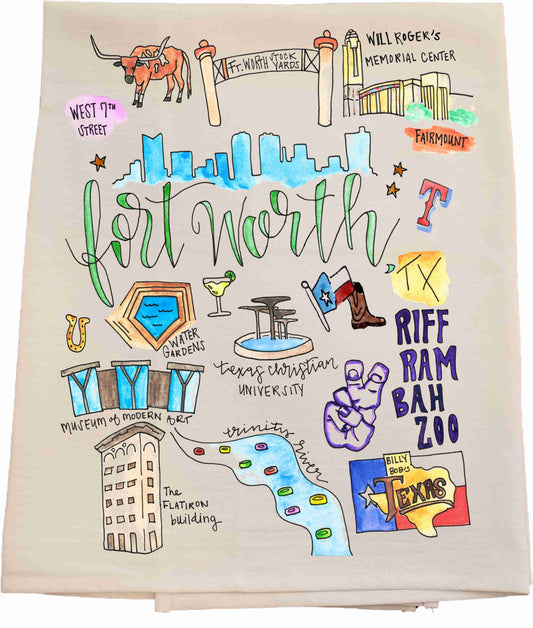 Ft. WORTH STOCK
YARDS
WILL ROGER'S
MEMORIAL CENTER
WEST 7TH
STREET
FAIRMOUNT
fort worth,
T
TX
WATER
GARDENS
texas christian
UNIVERSITY
RIFF
RAM
BAH
ZOO
MUSEUM of MODERN ART
trinity river
The
FLATIRON
building
BILLY
BOB'S
TEXAS